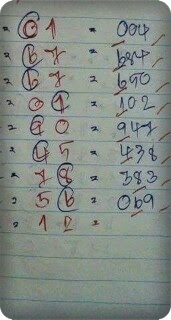 = 01 = 004
= 67 = 684
= 67 = 690
= 01 = 102
= 90 = 947
= 45 = 438
= 78 = 383
= 56 = 069
= 12 =